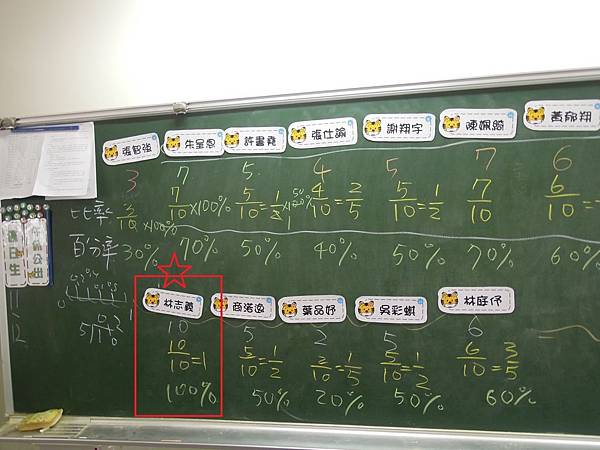 張智強 朱呈恩 許書堯 張仕諭 謝翔宇 陳姵綺 黃郁翔
3 7 5 4 5 7 6
比率 3/10 ×100% 7/10 ×100% 5/10=1/2 ×100% 4/10=2/5 5/10=1/2 7/10 6/10=
百分率 30% 70% 50% 40% 50% 70% 60%
值日生
林志羲 葉品妤 吳彩蝶 林庭伃
10 5 2 5 6
10/10=1 5/10=1/2 2/10=1/5 5/10=1/2 6/10=3/5
100% 50% 20% 50% 60%
11
12